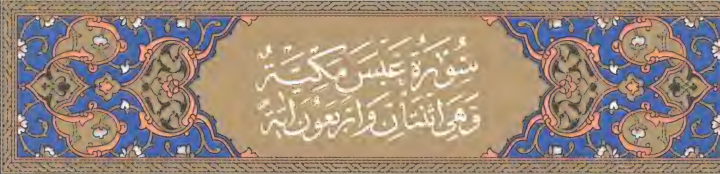 سُورَةُ عَبَسَ مَكِّيَّةٌ
وَهِيَ اثْنَتَانِ وَارْبَعُونَ اٰيَةً